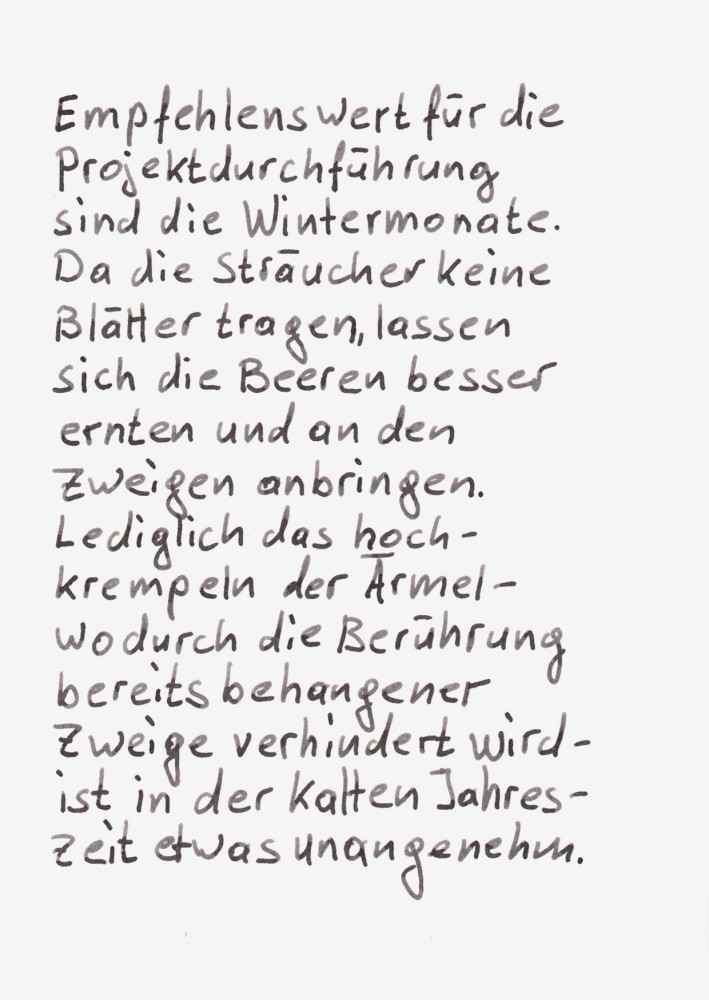 Empfehlenswert für die
Projektdurchführung
sind die Wintermonate.
Da die Sträucher keine
Blätter tragen, lassen
sich die Beeren besser
ernten und an den
Zweigen anbringen.
Lediglich das hoch-
krempeln der Ärmel-
wodurch die Berührung
bereits behangener
Zweige verhindert wird-
ist in der kalten Jahres-
zeit etwas unangenehm.